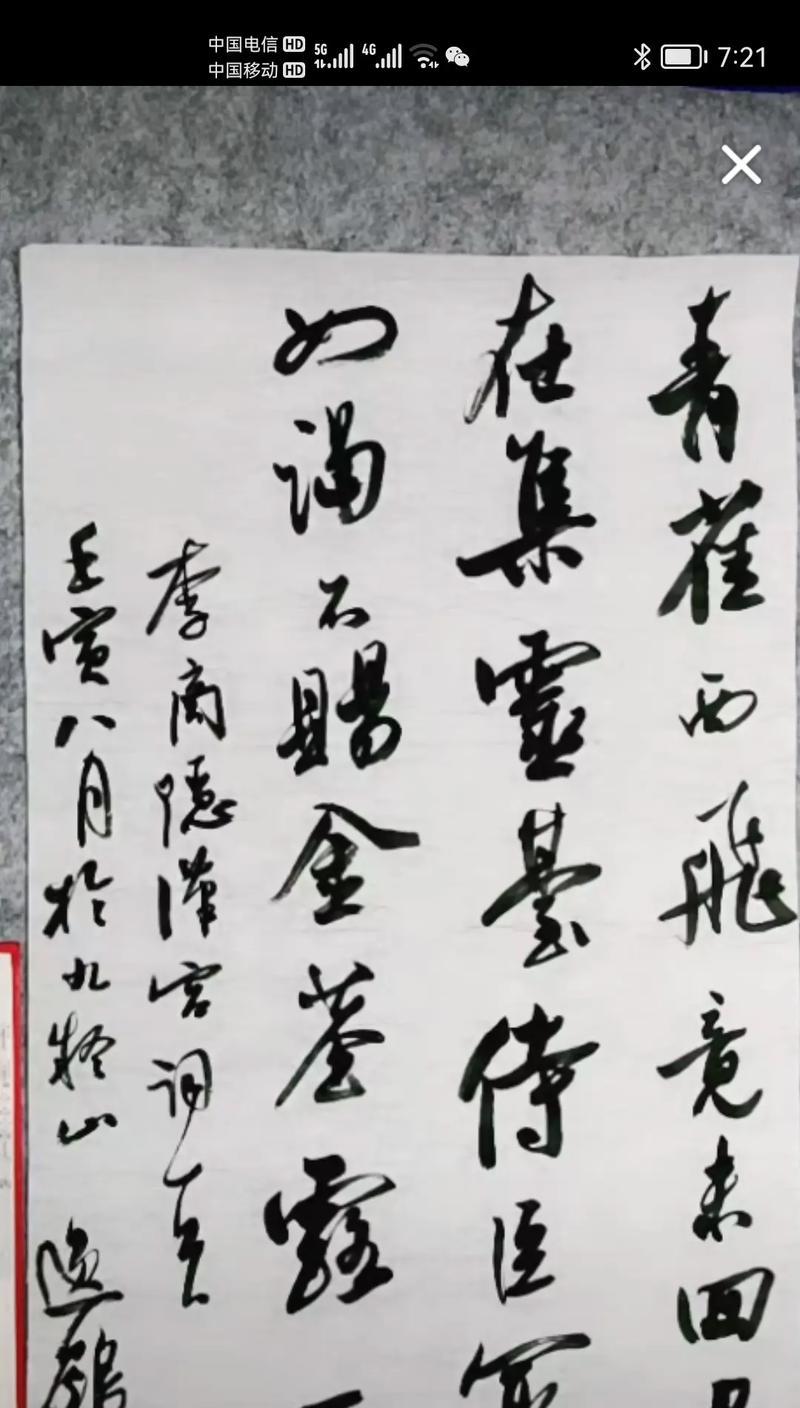 中国电信 HD 5G 4G 7:21
中国移动 HD
青雀西飛竟未回
在集靈臺侍臣冣
如渴不賜金莖露一
李商隱漢宮詞
壬寅八月於九疑山